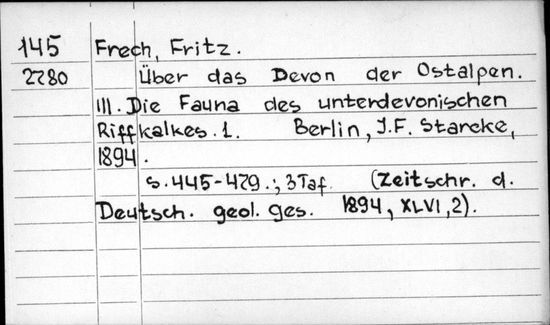 145 Frech, Fritz.
2280 Über das Devon der Ostalpen.
III. Die Fauna des unterdevonischen
Riffkalkes. 1. Berlin, J.F. Starcke,
1894.
S. 445-479.; 3 Taf. (Zeitschr. d.
Deutsch. geol. Ges. 1894, XLVI, 2).